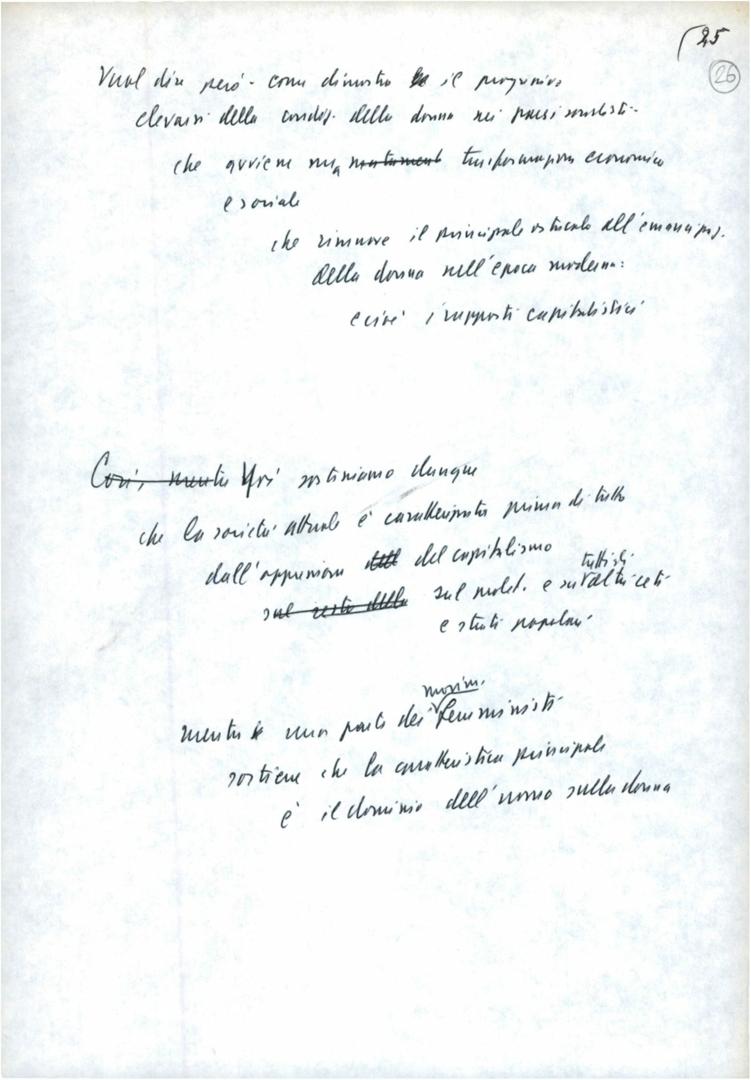 25
26
Vuol dire però - come dimostra il progressivo
elevarsi della condiz. della donna nei paesi socialisti -
che avviene una mutament trasformazione economica
e sociale
che rimuove il principale ostacolo all'emancipaz.
della donna nell'epoca moderna:
e cioè i rapporti capitalistici
Così, mentre Noi sosteniamo dunque
che la società attuale è caratterizzata prima di tutto
dall'oppressione dell del capitalismo
tutti gli
sul resto della sul prolet. e su altri ceti
e strati popolari
movim.
mentre una parte dei femministi
sostiene che la caratteristica principale
è il dominio dell'uomo sulla donna